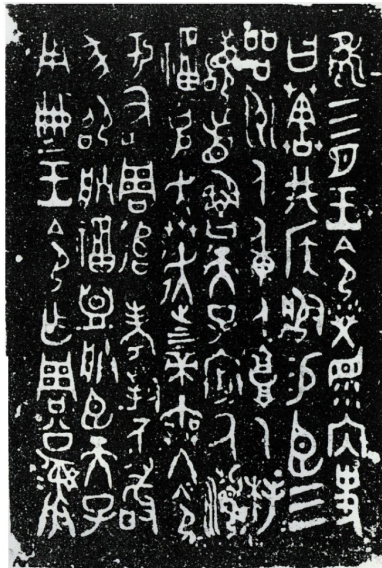 隹三月王令榮眔內史
曰𦱂井侯服易臣三
品州人重人庸人拜
稽首魯天子造厥瀕
福克奔走上下帝無冬令
于有周追考對不敢
㒸邵朕福盟朕臣天子
用典王令作周公彝